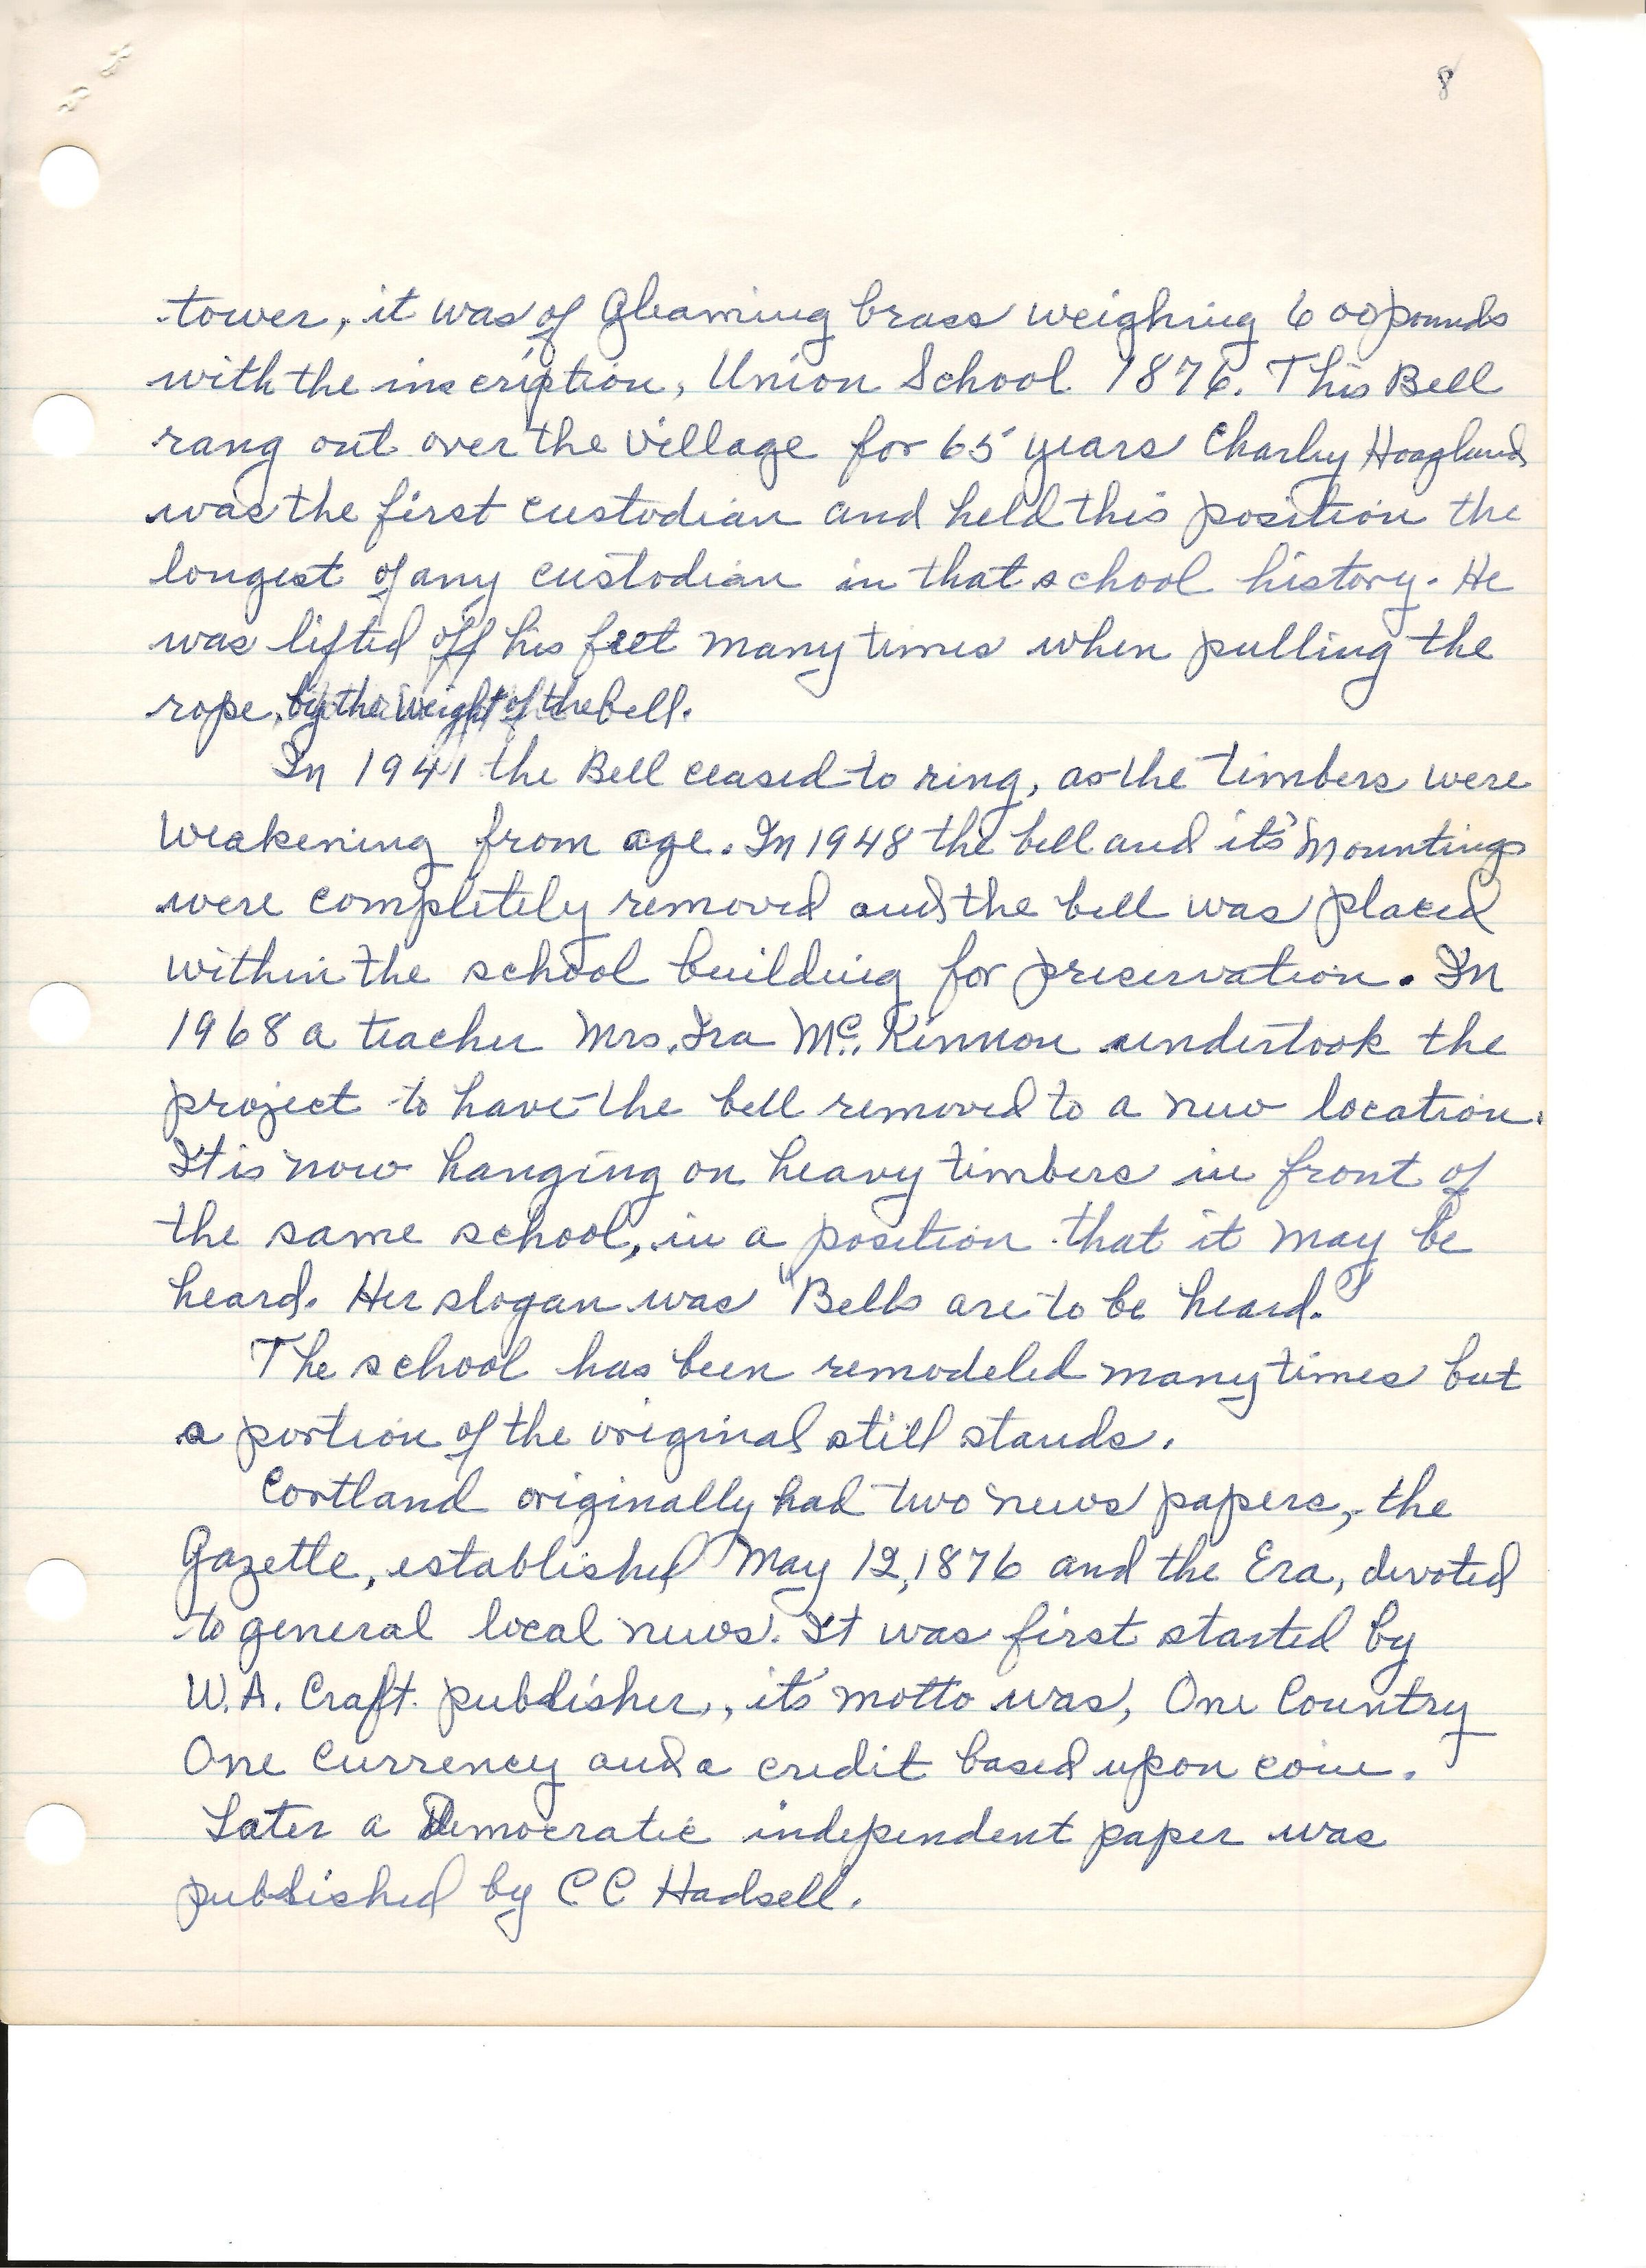 8
tower, it was of Gleaming brass weighing 600 pounds
with the inscription, Union School 1876. This Bell
rang out over the village for 65 years Charley Hoagland
was the first custodian and held this position the
longest of any custodian in that school history. He
was lifted off his feet many times when pulling the
rope, by the weight of the bell.
In 1941 the Bell ceased to ring, as the timbers were
weakening from age. In 1948 the bell and it's mountings
were completely removed and the bell was placed
within the school building for preservation. In
1968 a teacher Mrs. Ira Mc. Kinnon undertook the
project to have the bell removed to a new location.
It is now hanging on heavy timbers in front of
the same school, in a position that it may be
heard. Her slogan was "Bells are to be heard."
The school has been remodeled many times but
a portion of the original still stands.
Cortland originally had two news papers, the
Gazette, established May 12, 1876 and the Era, devoted
to general local news. It was first started by
W.A. Craft publisher, it's motto was, One Country
One Currency and a credit based upon coin.
Later a Democratic independent paper was
published by C C Hadsell.